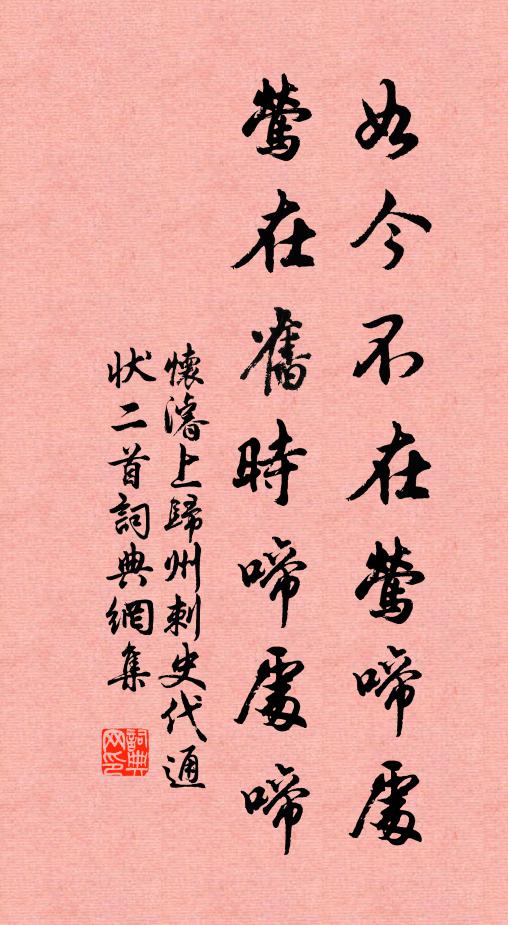 如今不在鶯啼處
鶯在舊時啼處啼
懷濬上歸州刺史代通
狀二首詞典網集
詞典网印